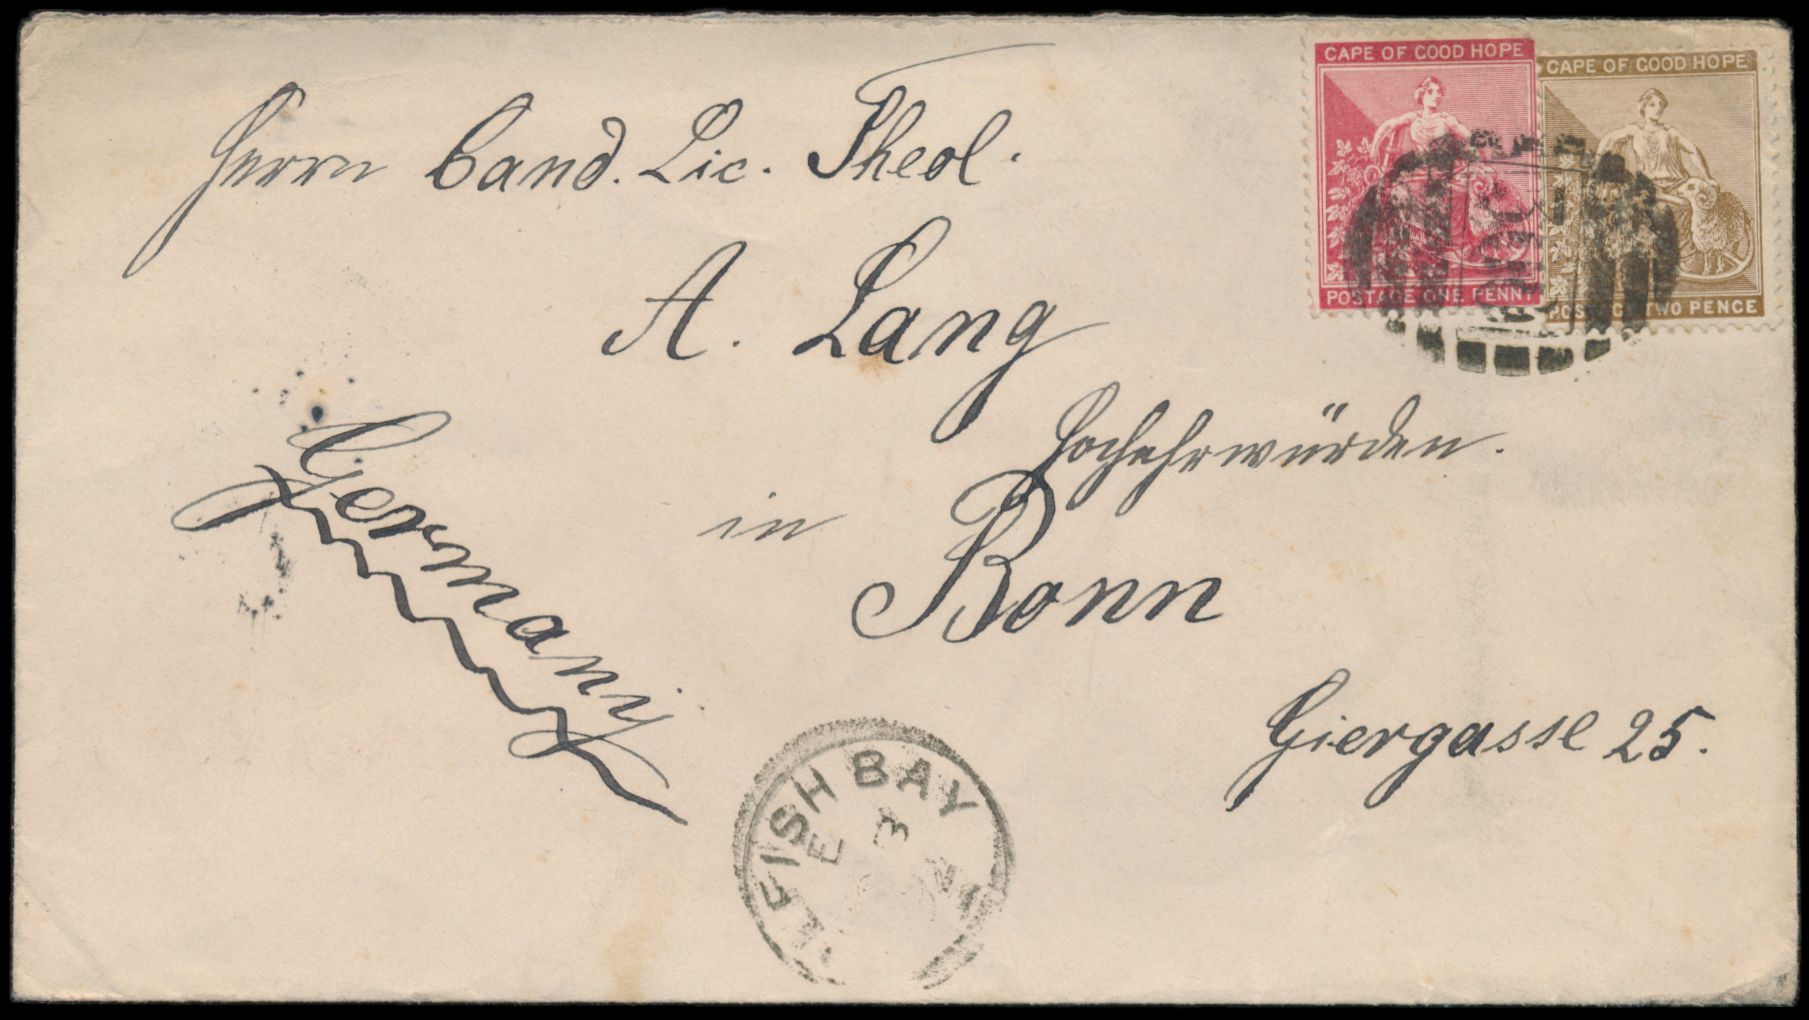 CAPE OF GOOD HOPE
POSTAGE ONE PENNY
CAPE OF GOOD HOPE
TWO PENCE
Herrn Cand. Lic. Theol.
A. Lang
Hochehrwürden.
in Bonn
Giergasse 25.
Germany
FISH BAY
E 3